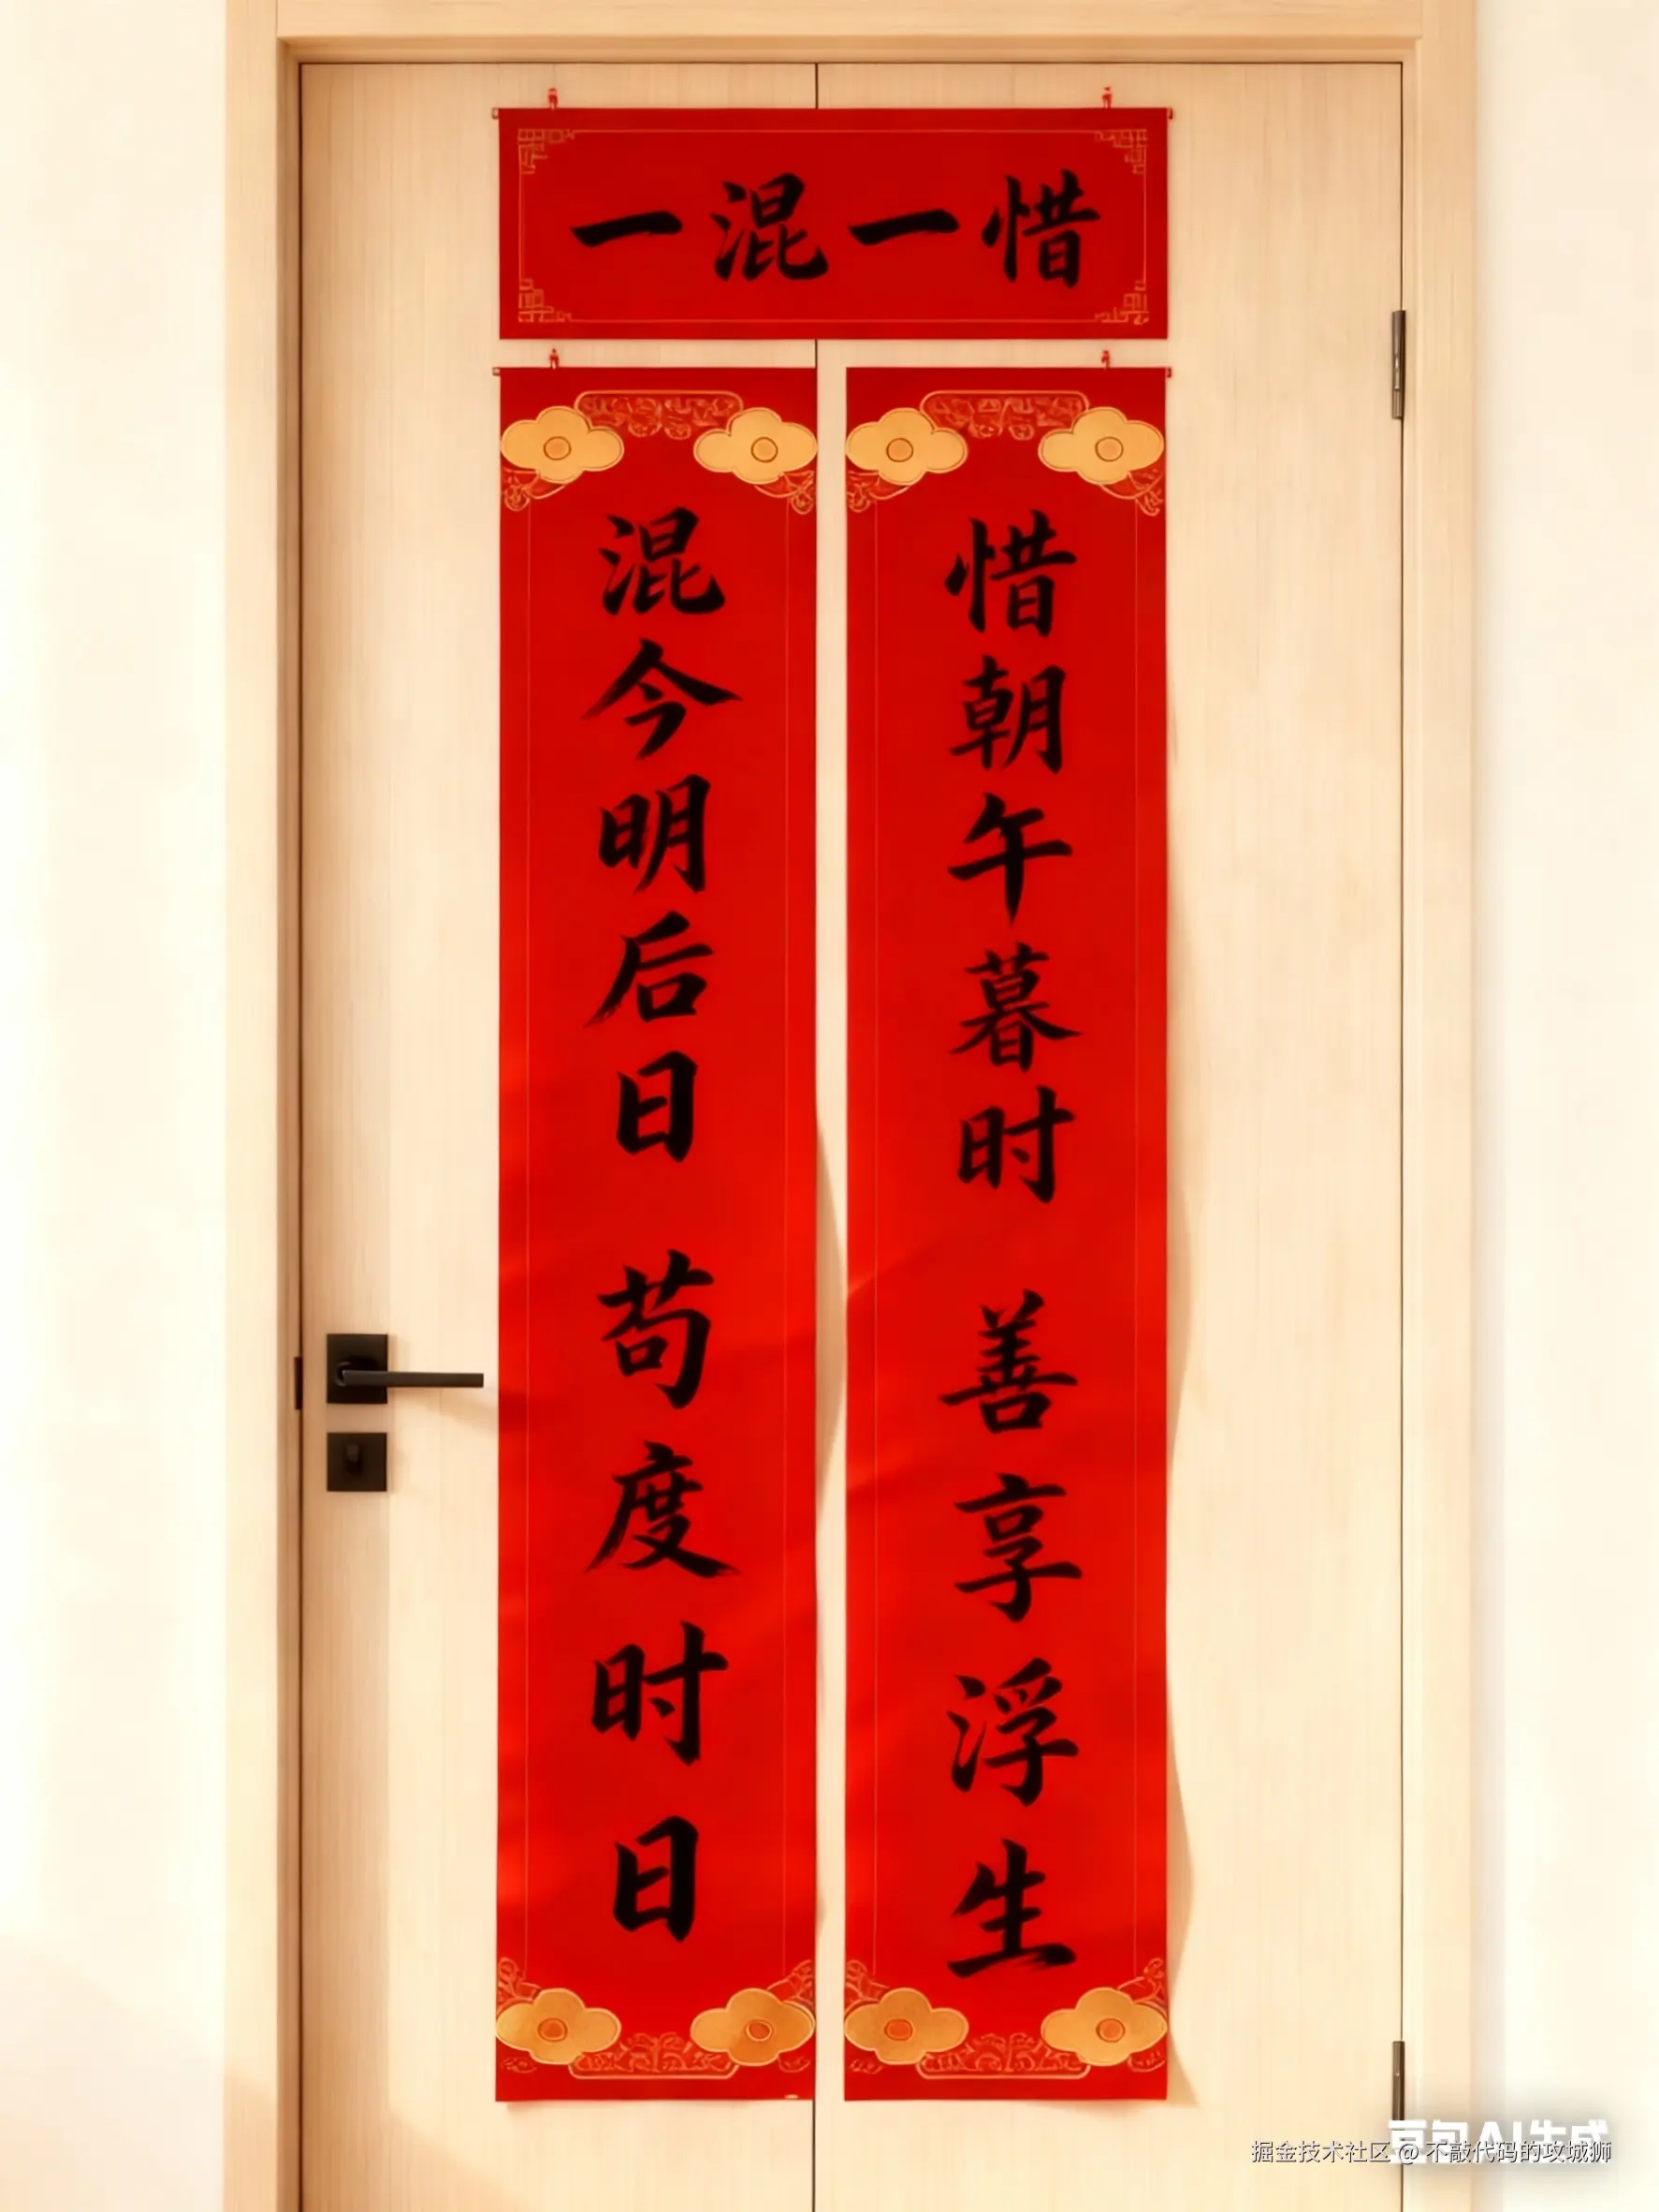 一混一惜
混今明后日 苟度时日
惜朝午暮时 善享浮生
豆包AI生成
掘金技术社区 @ 不敲代码的攻城狮